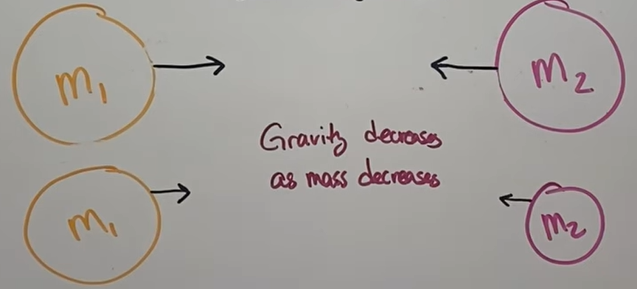 m₁
m₂
Gravity decreases
as mass decreases
m₁
m₂